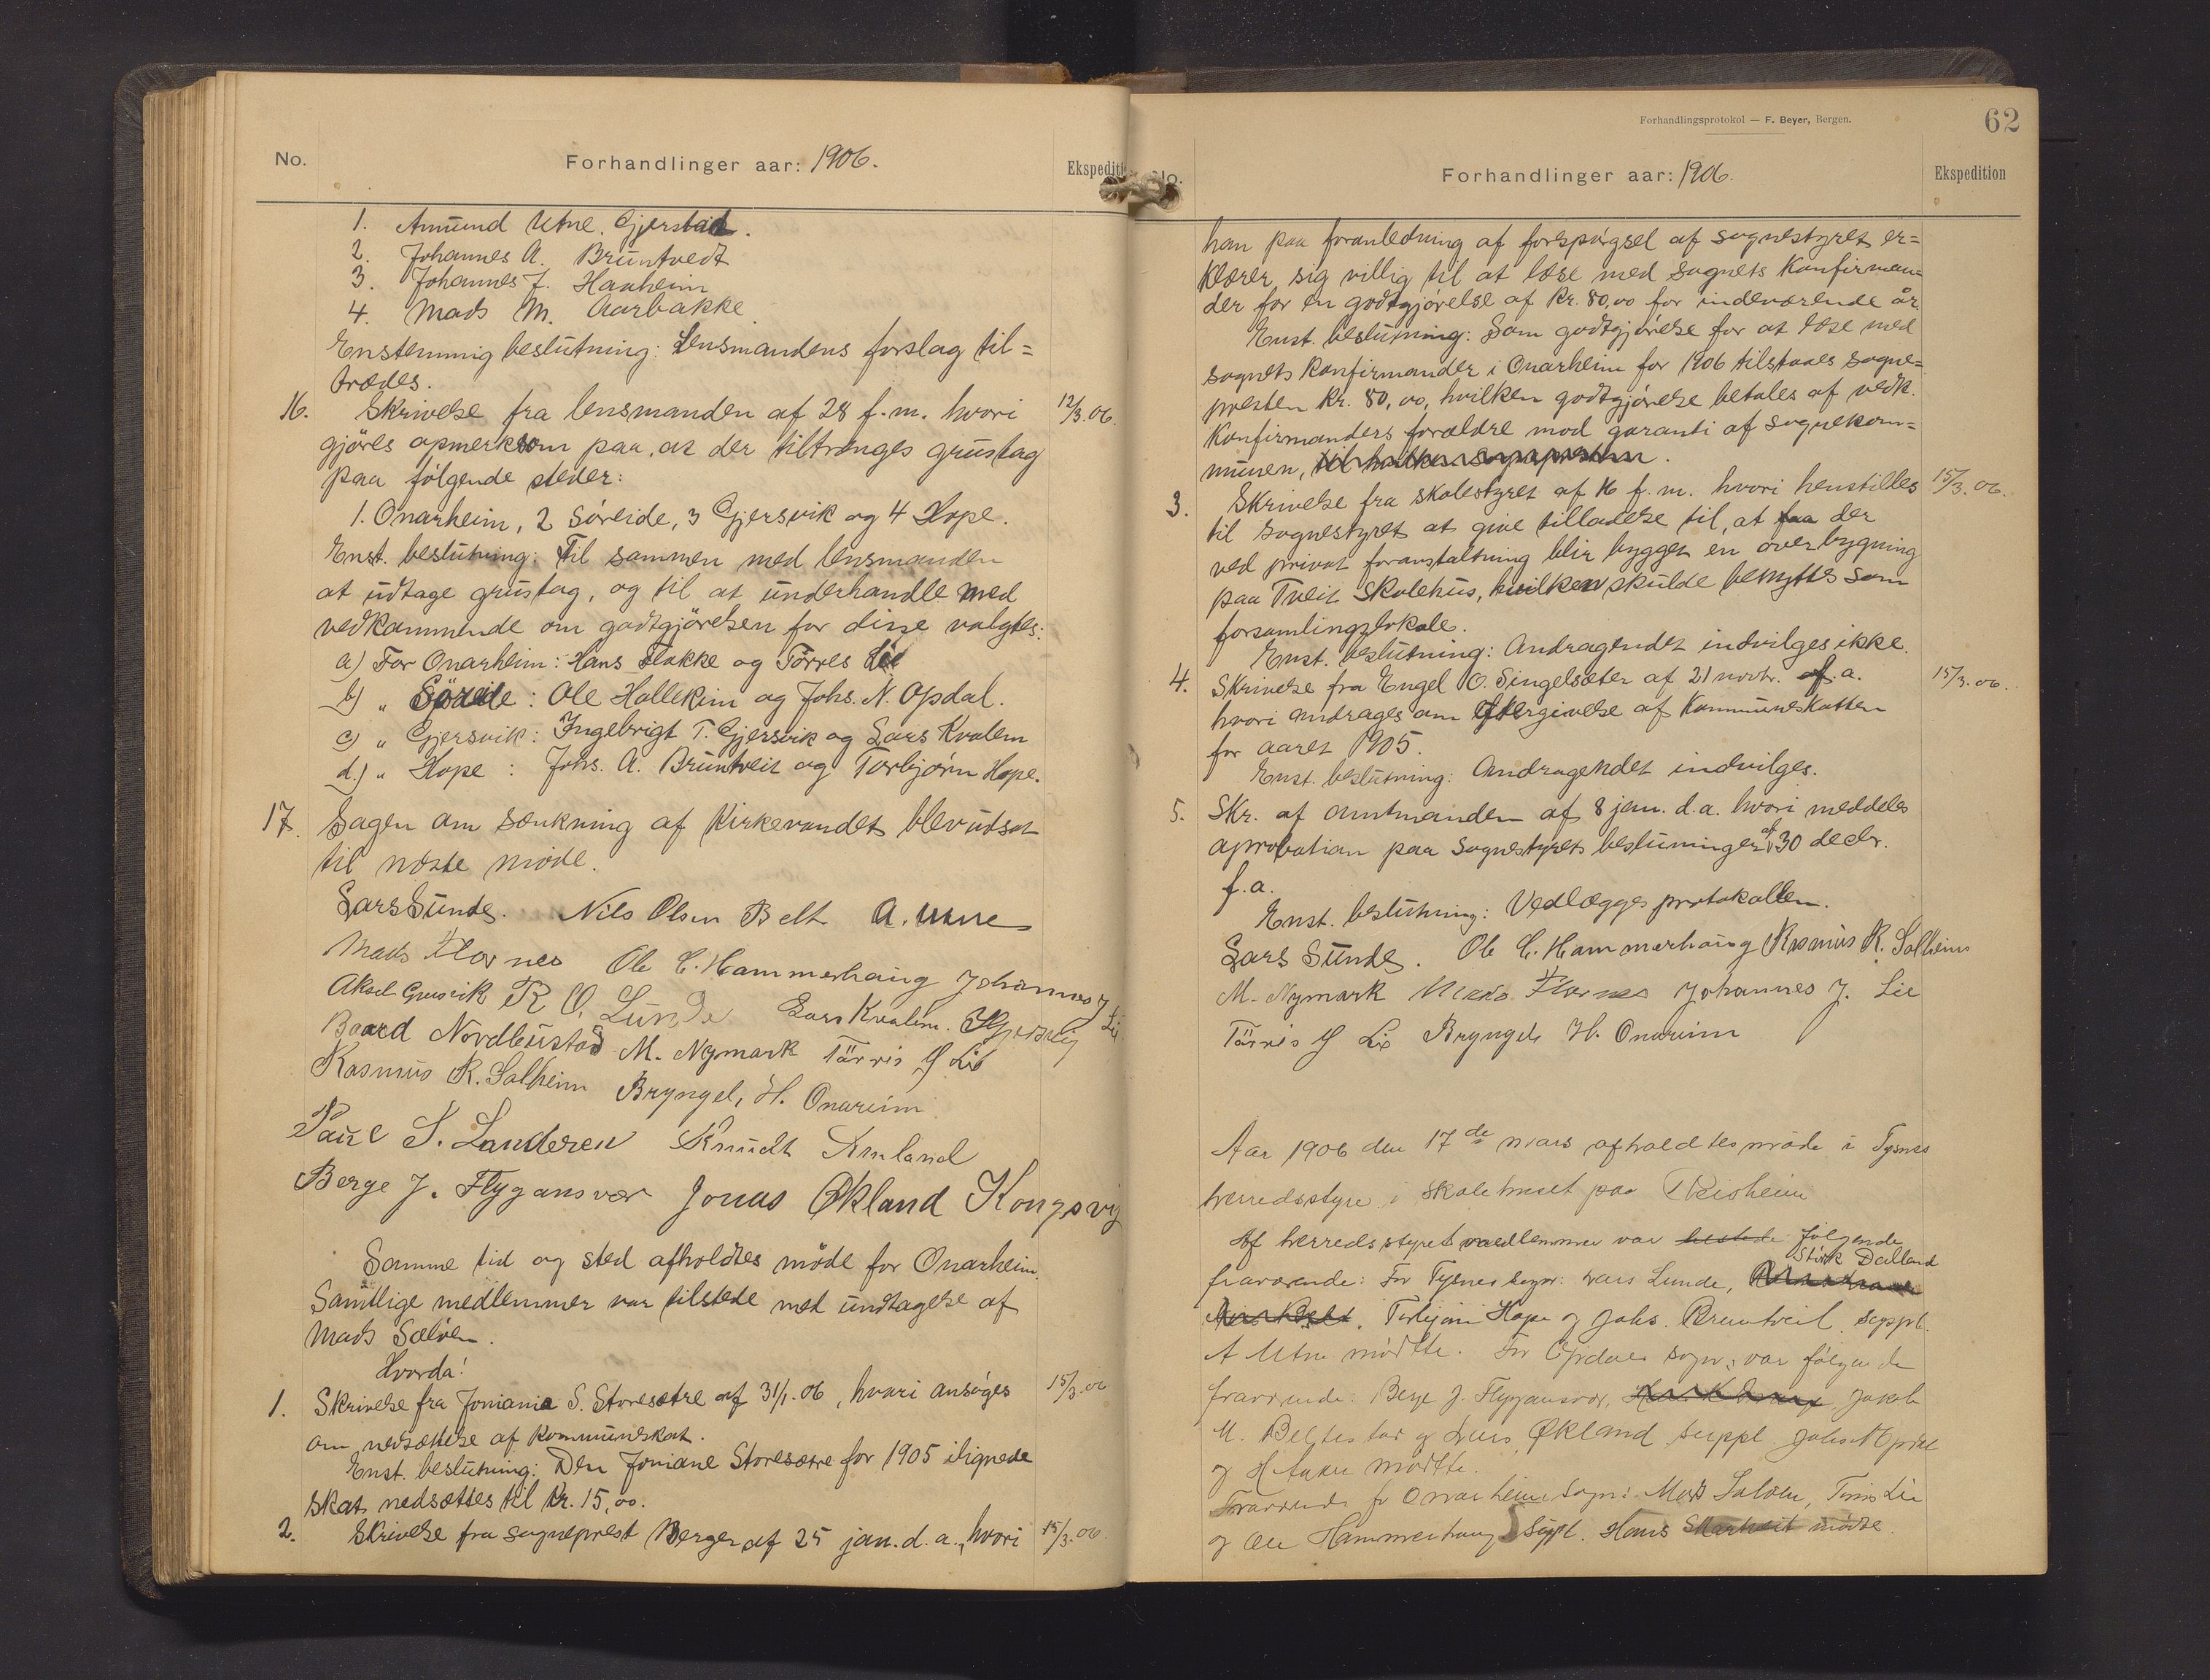 No. Forhandlinger aar: 1906. Ekspediti
1. Amund Utne. Gjerstad.
2. Johannes A. Bruntvedt
3. Johannes J. Haaheim
4. Mads M. Aarbakke.
Enstemmig beslutning: Lensmandens forslag til=
trædes.
16. Skrivelse fra lensmanden af 28 f.m. hvori 12/3.06.
gjöres opmerksom paa, at der tiltrænges grustag
paa følgende steder:
1. Onarheim, 2 Søreide, 3 Gjersvik og 4 Hope.
Enst. beslutning: Til sammen med lensmanden
at udtage grustag, og til at underhandle med
vedkommende om godtgjörelsen for disse valgtes:
a) For Onarheim: Hans Flakke og Törres Lie
b) " Søreide: Ole Hallekim og Johs. N. Opsdal.
c) " Gjersvik: Ingebrigt T. Gjersvik og Lars Kvalem
d.) " Hope: Johs. A. Bruntveit og Torbjørn Hope.
17. Sagen om sænkning af Kirkevandet blev udsat
til næste møde.
Lars Sunde. Nils Olsen Belt A. Utne
Mads Flornes Ole C. Hammerhaug Johannes J Lie
Aksel Gjersvik R O. Lunde Lars Kvalem.
Baard Nordbustad M. Nymark Törris J Lie
Rasmus R. Solheim Bryngel, H. Onareim
Paul S. Landeren Knudt
Berge J. Flygansvær Jonas Økland Kongsvig
Samme tid og sted afholdtes möde for Onarheim.
Samtlige medlemmer var tilstede med undtagelse af
Mads Sælöen.
Hvorda:
1. Skrivelse fra Joniania S. Storesætre af 31/1.06, hvori ansøges 15/3.06
om nedsættelse af kommuneskat.
Enst. beslutning: Den Joniane Storesætre for 1905 ilignede
skat nedsættes til kr. 15,00.
2. Skrivelse fra sogneprest Berger af 25 jan. d.a., hvori 15/3.06.
Forhandlingsprotokol — F. Beyer, Bergen. 62
No. Forhandlinger aar: 1906. Ekspedition
han paa foranledning af forespørgsel af sognestyret er=
klærer sig villig til at læse med sognets Konfirman=
der for en godtgjørelse af kr. 80,00 for indeværende år.
Enst. beslutning: Som godtgjørelse for at læse med
sognets konfirmander i Onarheim for 1906 tilstaaes sogne=
presten kr. 80,00, hvilken godtgjørelse betales af vedk.
Konfirmanders forældre mod garanti af sognekom=
munen,
3. Skrivelse fra skolestyret af 16 f.m. hvori henstilles 15/3.06.
til sognestyret at give tilladelse til, at faa der
ved privat foranstaltning blir bygget én overbygning
paa Tveit Skolehus, hvilken skulde benyttes som
forsamlingslokale.
Enst. beslutning: Andragendet indvilges ikke.
4. Skrivelse fra Engel O. Singelsæter af 21 novbr. f.a. 15/3.06.
hvori andrages om eftergivelse af Kommuneskatten
for aaret 1905.
Enst. beslutning: Andragendet indvilges.
5. Skr. af amtmanden af 8 jan. d.a. hvori meddeles
aprobation paa sognestyrets beslutninger af 30 decbr.
f.a.
Enst. beslutning: Vedlægges protokollen.
Lars Sunde. Ole C. Hammerhaug Rasmus R. Solheim
M. Nymark Mads Flornes Johannes J. Lie
Törris J Lie Bryngel, H. Onareim
Aar 1906 den 17de mars afholdtes møde i Tysnes
herredsstyre i skolehuset paa
Af herredsstyrets medlemmer var tilstede følgende
fraværende: For Tysnes sogn: Lars Lunde, Störk Dalland
Torbjørn Hope og Johs. Bruntveit. Suppl.
A Utne mødte. For Opdals sogn: var følgende
fraværende: Berge J. Flygansvær, Jakob
M. Beltestad og Lars Økland suppl Johs N Opdal
og H mødte.
Fraværende for Onarheim sogn: Mads Sælöen, Törris Lie
og Ole Hammerhaug Suppl. Hans Skarveit mødte.